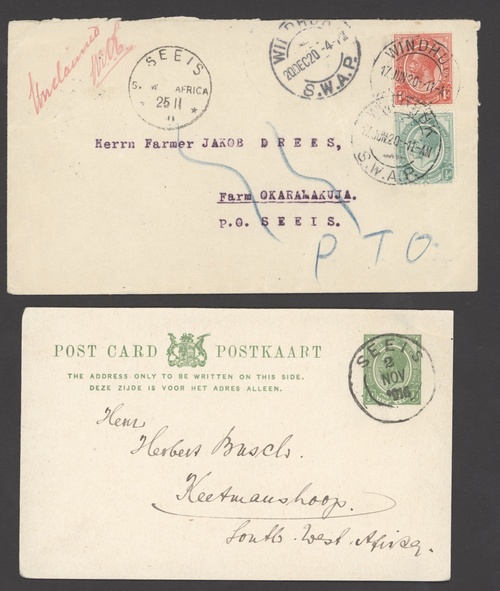 Unclaimed
SEEIS
S. W. AFRICA
25 11
WINDHUK
20DEC20-4-PM
S.W.A.P.
WINDHUK
17JUN20-11-AM
17JUN20-11-AM
S.W.A.P.
Herrn Farmer JAKOB DREES,
Farm OKARAMAKUJA.
P.O. SEEIS.
PTO.
POST CARD POSTKAART
THE ADDRESS ONLY TO BE WRITTEN ON THIS SIDE.
DEZE ZIJDE IS VOOR HET ADRES ALLEEN.
SEEIS
2
NOV
Herrn
Herbert Busch.
Keetmanshoop.
South-West Africa.